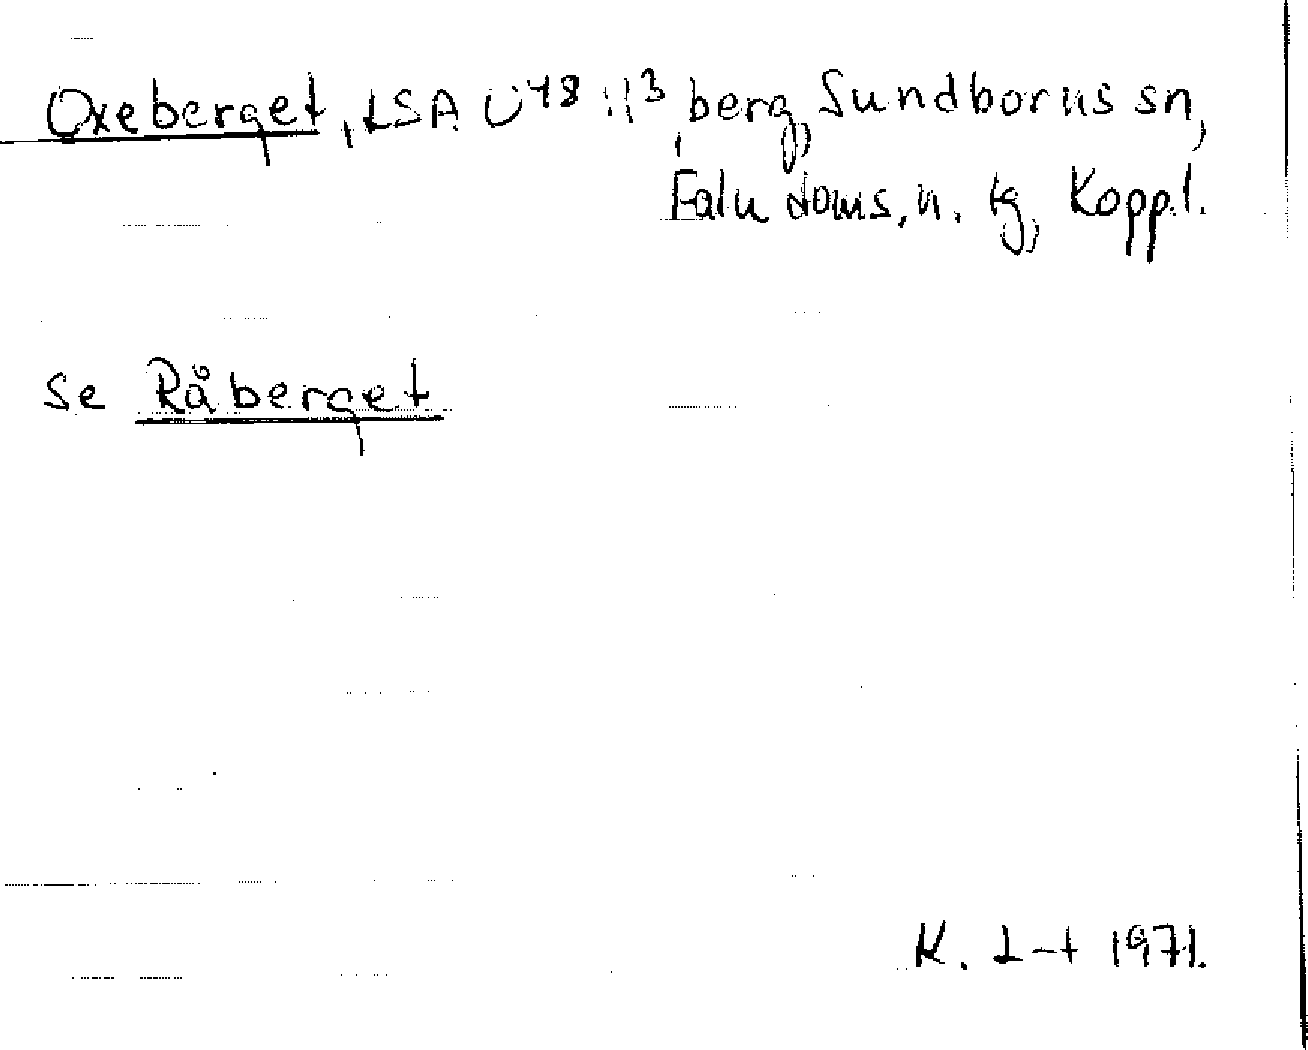 Oxeberget, LSA U48:13, berg, Sundborns sn,
Falu doms. n. tg, Koppl.
se Råberget
K. L-t 1971.